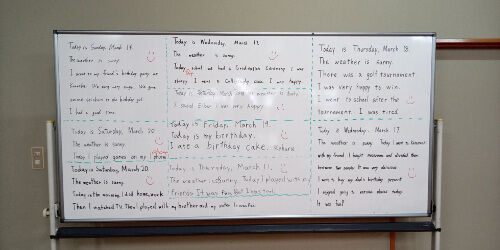 Today is Sunday, March 14.
The weather is sunny.
I went to my friend's birthday party on
We very very enjoy. We give
to the birthday girl.
I had a good time.
Today is Wednesday, March 17.
The weather is sunny.
Today, school we had a Graduation Ceremony. I was
sleepy. I went to cake. I was happy.
Today is Saturday, March
I was very happy.
Today is Thursday, March 18.
The weather is sunny.
There was a golf tournament
I was very happy to win.
I went to school after the
tournament. I was tired.
Today is Saturday, March 20
The weather is sunny.
Today I played games on my iphone
Today is Friday, March 19.
Today is my birthday.
I ate a birthday cake.
Today is Wednesday, March 17
The weather is sunny. Today I went to
with my friend. I bought and divided them
between two people. It was very delicious.
I went to buy my dad's birthday present.
I enjoyed going to various places today.
It was fun!
Today is Saturday, March 20
The weather is sunny.
Today in the morning, I did homework.
Then I watched TV. Then I played with my brother and my sister
Today is Thursday, March 11.
The weather is sunny. Today I played with my
friends. It was fun, but I was tired.